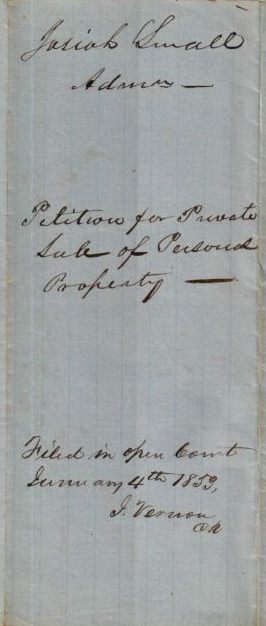 Josiah Small
Admor —
Petition for Private
Sale of Personal
Property —
Filed in open Court
January 4th 1859,
J. Vernon
Clk